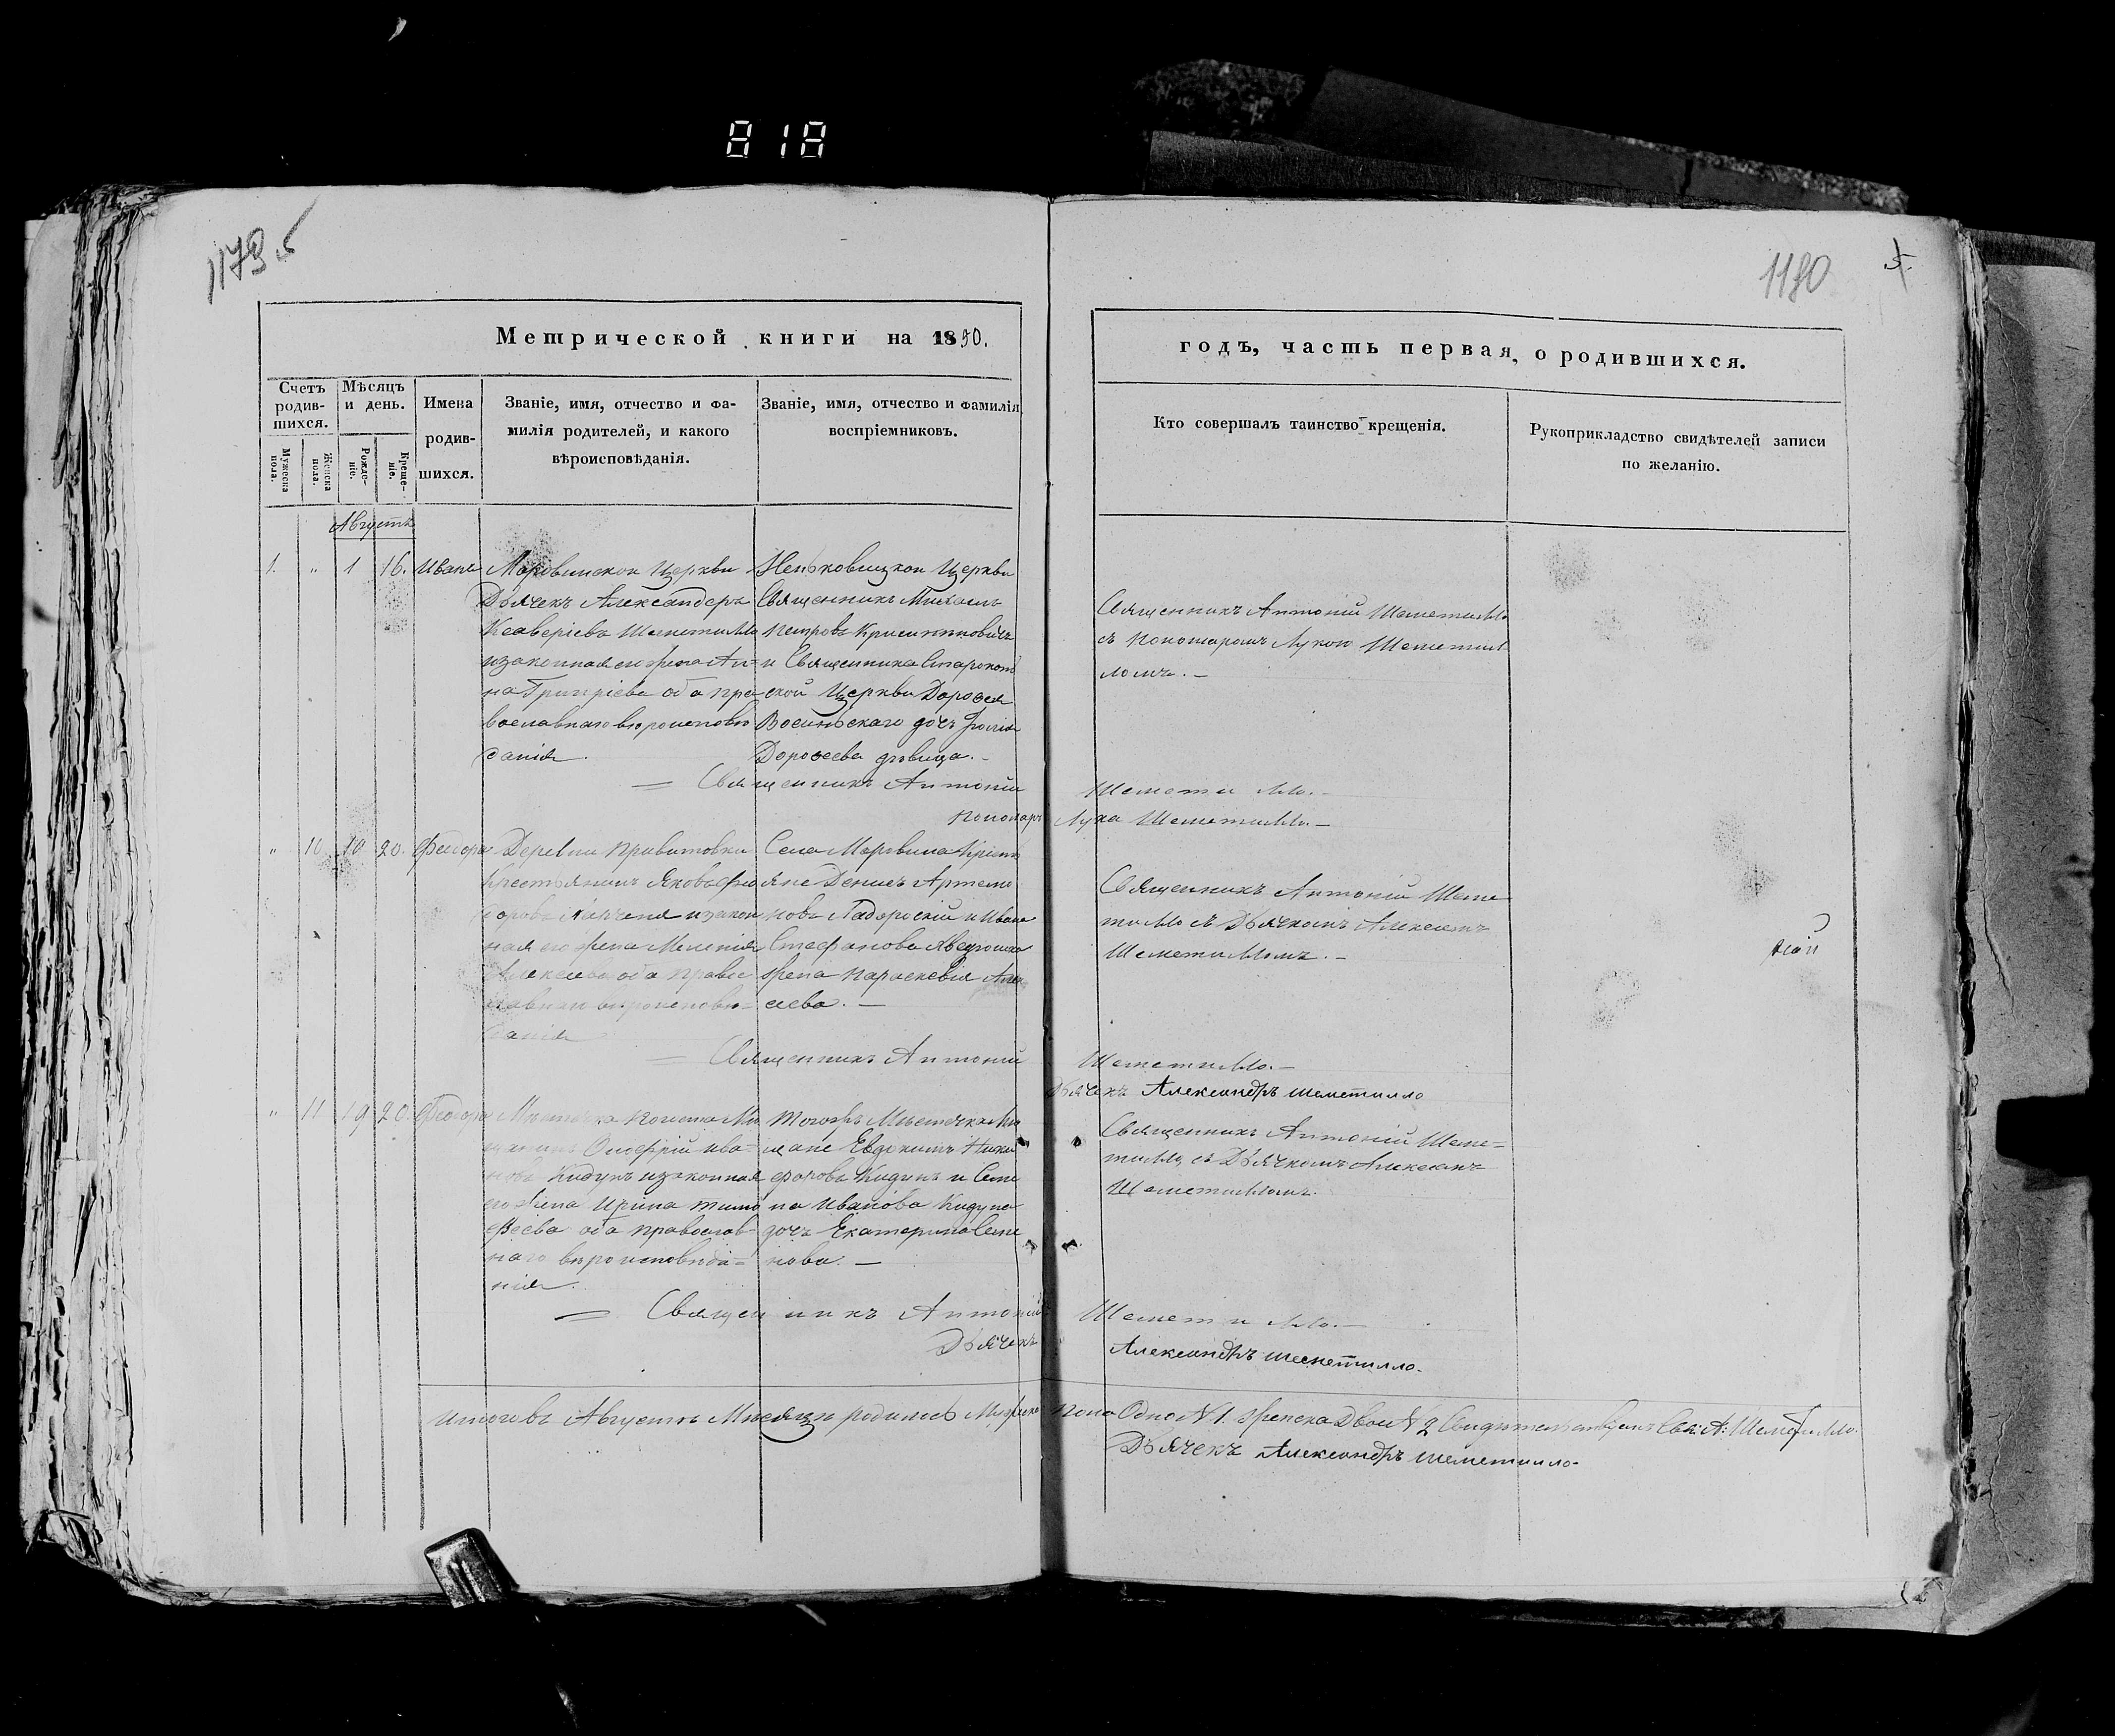 818
1179 5
1180
5.
Метрической книги на 1850.
годъ, часть первая, о родившихся.
Счетъ родив-шихся.
Мѣсяцъ и день.
Имена родив-шихся.
Званіе, имя, отчество и фа-
милія родителей, и какого
вѣроисповѣданія.
Званіе, имя, отчество и фамилія
воспріемниковъ.
Мужеска пола.
Женска пола.
Рожде-ніе.
Креще-ніе.
Кто совершалъ таинство крещенія.
Рукоприкладство свидѣтелей записи
по желанію.
Августъ
1. " 1 16. Иванъ
Церкви
Дьячекъ Александеръ
Ксаверіевъ Шеметилло
изаконная его жена Ан-
на Григоріева оба пра
вославнаго вѣроисповѣ
данія.
Церкви
Священникъ Михаилъ
Петровъ
и Священника
ской Церкви Дорофея
дочь
Дорофеева дѣвица.-
Священникъ Антоній Шеметилло
съ Пономаромъ Лукою Шеметил
ломъ.-
Священникъ Антоній Шеметилло.-
Пономарь Лука Шеметилло.-
" 10 10 20. Феодора
Деревни
Крестьянинъ Яковъ Фео
доровъ изакон
ная его жена Меланія
Алексіева оба Правос
лавнаго вѣроисповѣ-
данія
Села
яне Денисъ Артемо
новъ и Ивана
Стефанова
жена Параскевія Алек
сіева.-
Священникъ Антоній Шеме
тилло съ Дьячкомъ Алексан
Шеметилломъ.-
Священникъ Антоній Шеметилло.-
Дьячекъ Александръ Шеметилло
" 11 19 20. Феодора
Мѣстечка Ми
щанинъ Онофрій Ива-
новъ Кидунъ изаконная
его жена Ирина Тимо
феева оба Православ-
наго вѣроисповѣда-
нія.
Тогожъ Мѣстечка Мѣ
щане Евдокимъ Ники
форовъ Кидунъ и Семе
на Иванова Кидуна
дочь Екатерина Семе
нова.-
Священникъ Антоній Шеме-
тилло съ Дьячкомъ Алексан
Шеметилломъ.
Священникъ Антоній Шеметилло.-
Дьячекъ Александръ Шеметилло.
Итого въ Августѣ Мѣсяцѣ родилось Мужеска пола Одно № 1. женска Двои № 2 Свя: А: Шеметилло.
Дьячекъ Александръ Шеметилло.